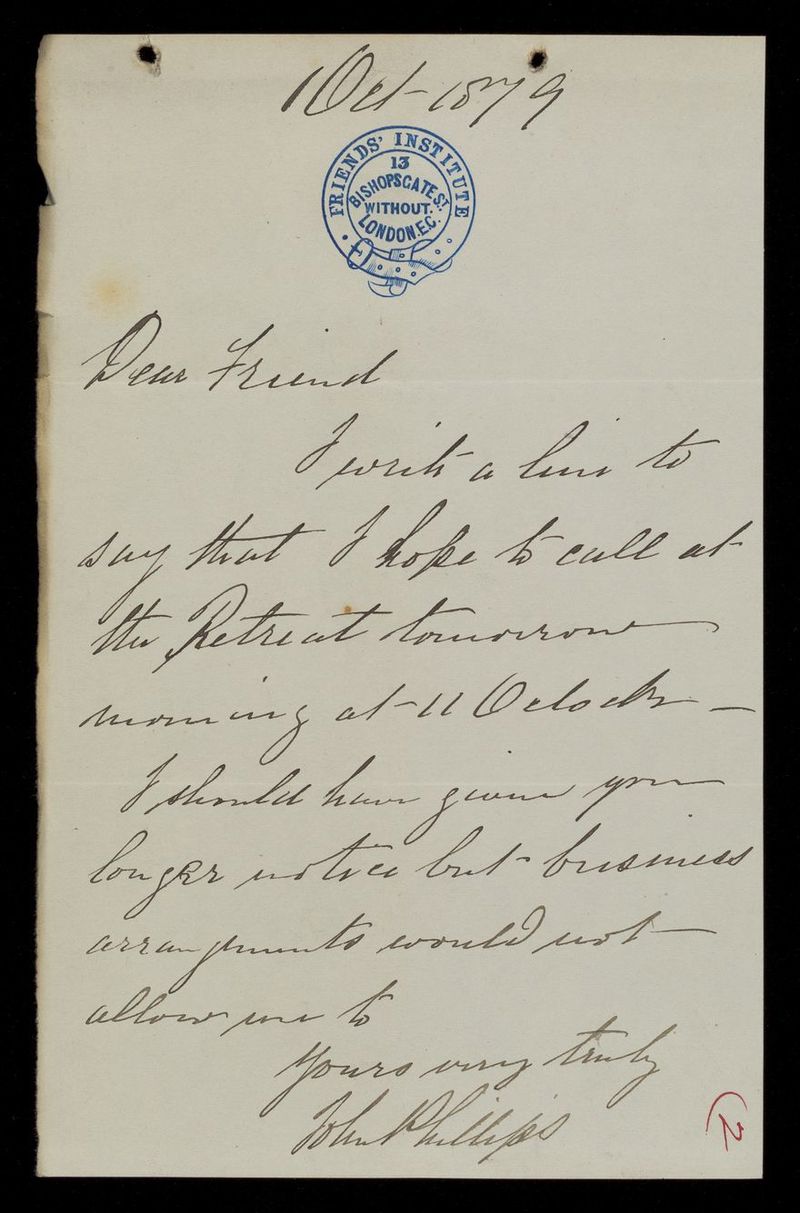 1 Oct- 1879
FRIENDS' INSTITUTE
13
BISHOPSGATE ST.
WITHOUT.
LONDON.E.C.
Dear Friend
I write a line to
say that I hope to call at
the Retreat tomorrow
morning at 11 Oclock —
I should have given you
longer notice but business
arrangements would not
allow me to
Yours very truly
John Phillips
(2